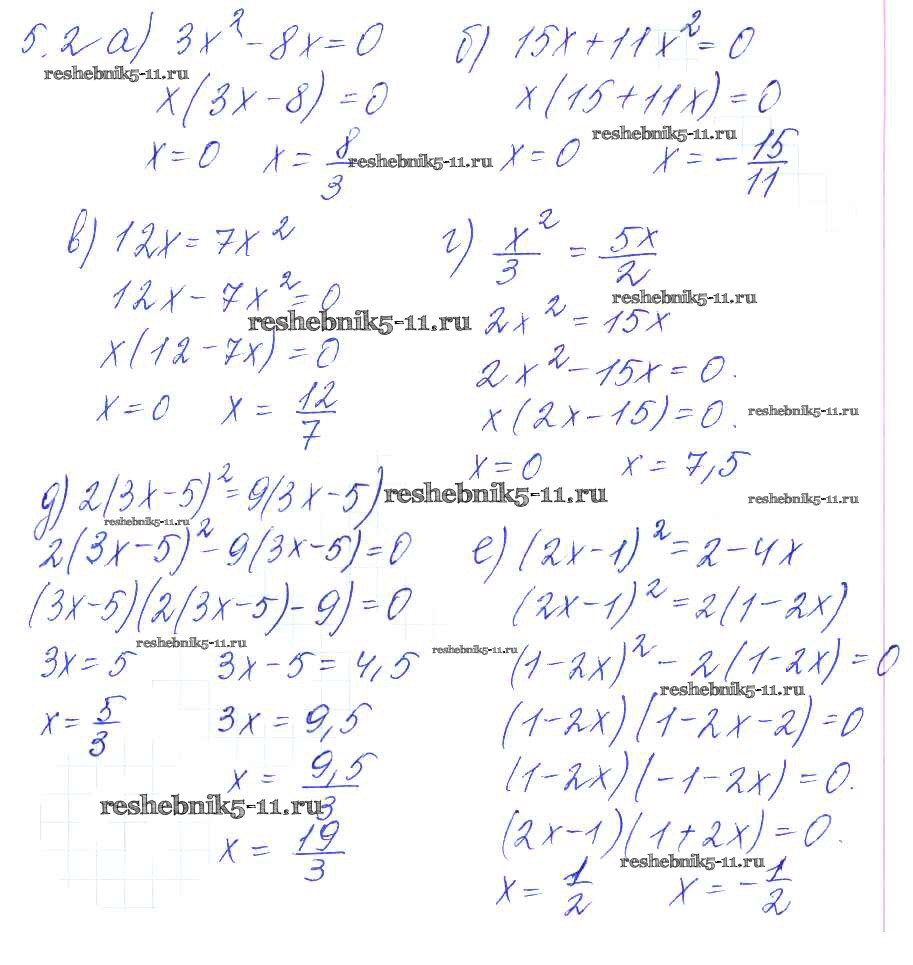 5.2 а) 3x² - 8x = 0
x(3x - 8) = 0
x = 0 x = 8/3
б) 15x + 11x² = 0
x(15 + 11x) = 0
x = 0 x = -15/11
в) 12x = 7x²
12x - 7x² = 0
x(12 - 7x) = 0
x = 0 x = 12/7
г) x²/3 = 5x/2
2x² = 15x
2x² - 15x = 0.
x(2x - 15) = 0.
x = 0 x = 7,5
д) 2(3x - 5)² = 9(3x - 5)
2(3x - 5)² - 9(3x - 5) = 0
(3x - 5)(2(3x - 5) - 9) = 0
3x = 5 3x - 5 = 4,5
x = 5/3 3x = 9,5
x = 9,5/3
x = 19/3
е) (2x - 1)² = 2 - 4x
(2x - 1)² = 2(1 - 2x)
(1 - 2x)² - 2(1 - 2x) = 0
(1 - 2x)(1 - 2x - 2) = 0
(1 - 2x)(-1 - 2x) = 0.
(2x - 1)(1 + 2x) = 0.
x = 1/2 x = -1/2
reshebnik5-11.ru
reshebnik5-11.ru
reshebnik5-11.ru
reshebnik5-11.ru
reshebnik5-11.ru
reshebnik5-11.ru
reshebnik5-11.ru
reshebnik5-11.ru
reshebnik5-11.ru
reshebnik5-11.ru
reshebnik5-11.ru
reshebnik5-11.ru
reshebnik5-11.ru
reshebnik5-11.ru